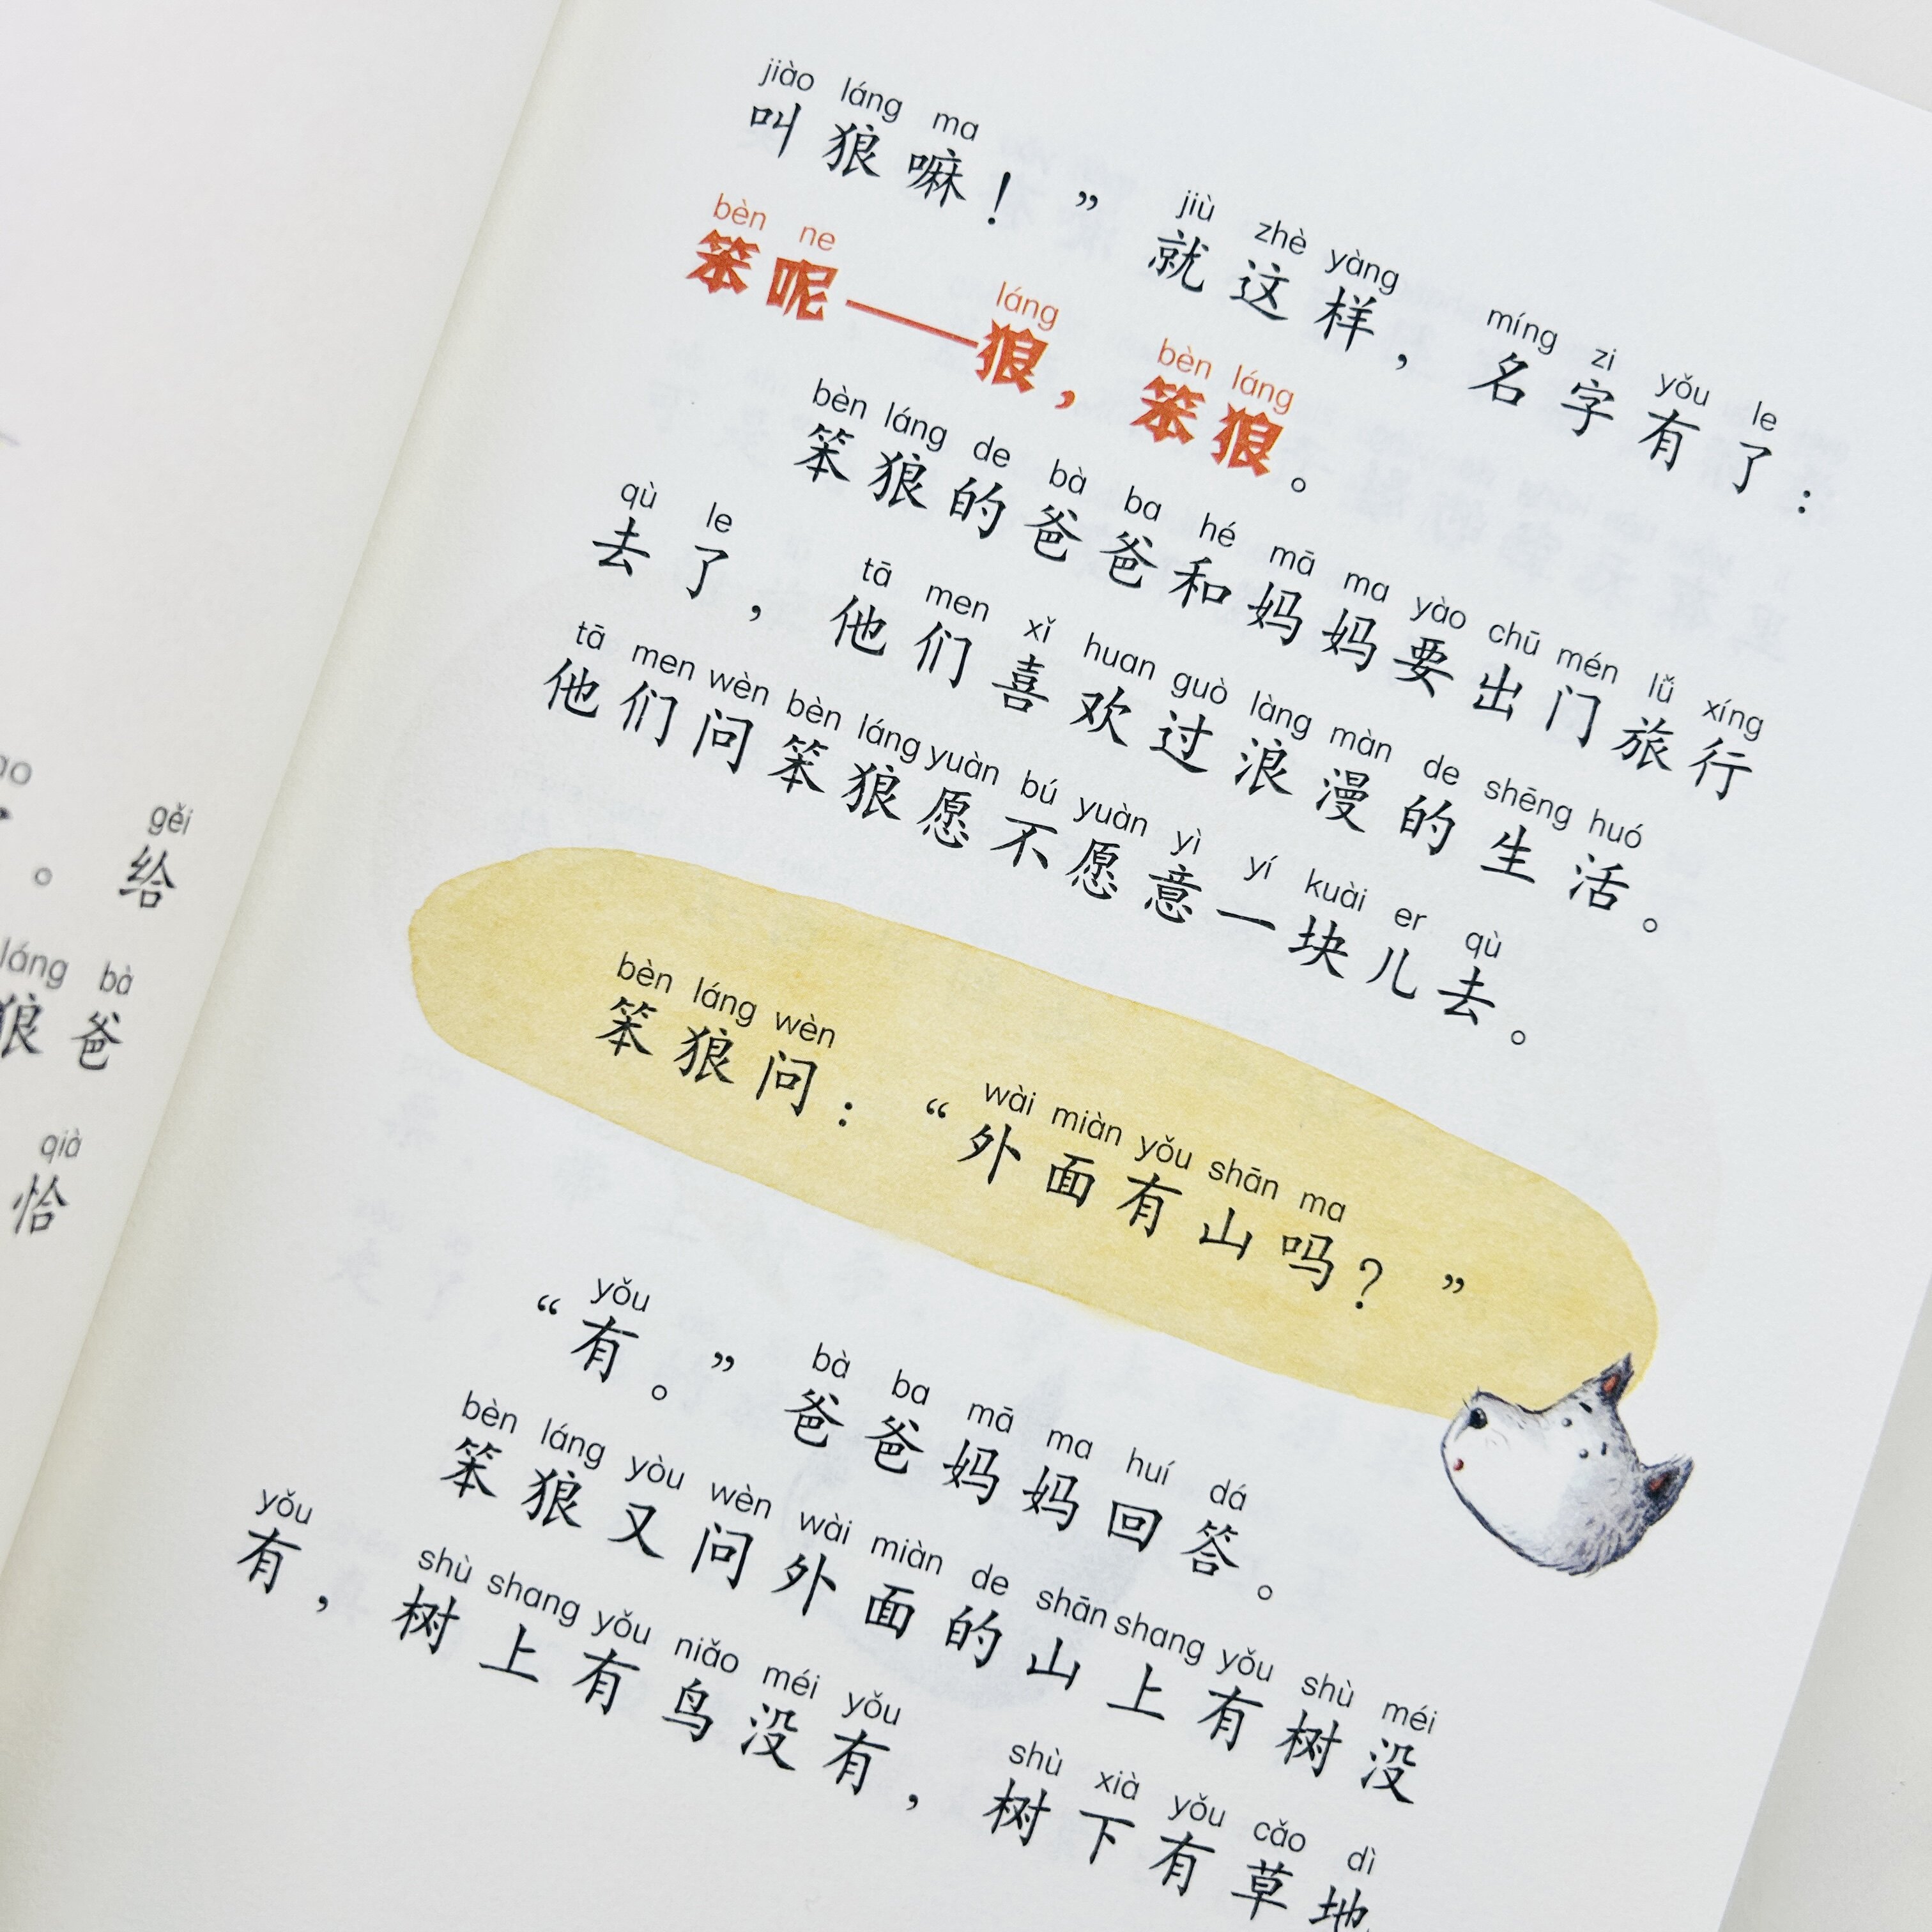 gěi
给
láng bà
狼爸
qià
恰
jiào láng ma jiù zhè yàng míng zi yǒu le
叫狼嘛！”就这样，名字有了：
bèn ne láng bèn láng
笨呢——狼，笨狼。
bèn láng de bà ba hé mā ma yào chū mén lǚ xíng
笨狼的爸爸和妈妈要出门旅行
qù le tā men xǐ huan guò làng màn de shēng huó
去了，他们喜欢过浪漫的生活。
tā men wèn bèn láng yuàn bú yuàn yì yí kuài er qù
他们问笨狼愿不愿意一块儿去。
bèn láng wèn wài miàn yǒu shān ma
笨狼问：“外面有山吗？”
yǒu bà ba mā ma huí dá
“有。”爸爸妈妈回答。
bèn láng yòu wèn wài miàn de shān shang yǒu shù méi
笨狼又问外面的山上有树没
yǒu shù shang yǒu niǎo méi yǒu shù xià yǒu cǎo dì
有，树上有鸟没有，树下有草地